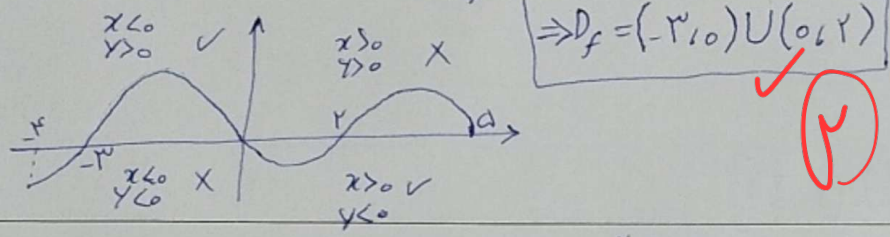 x<0
y>0 ✓
x>0
y>0 ×
⇒ D_f = (-۳,۰) ∪ (۰,۲)
✓
-۴
-۳
۲
۵
x<0
y<0 ×
x>0 ✓
y<0
۲